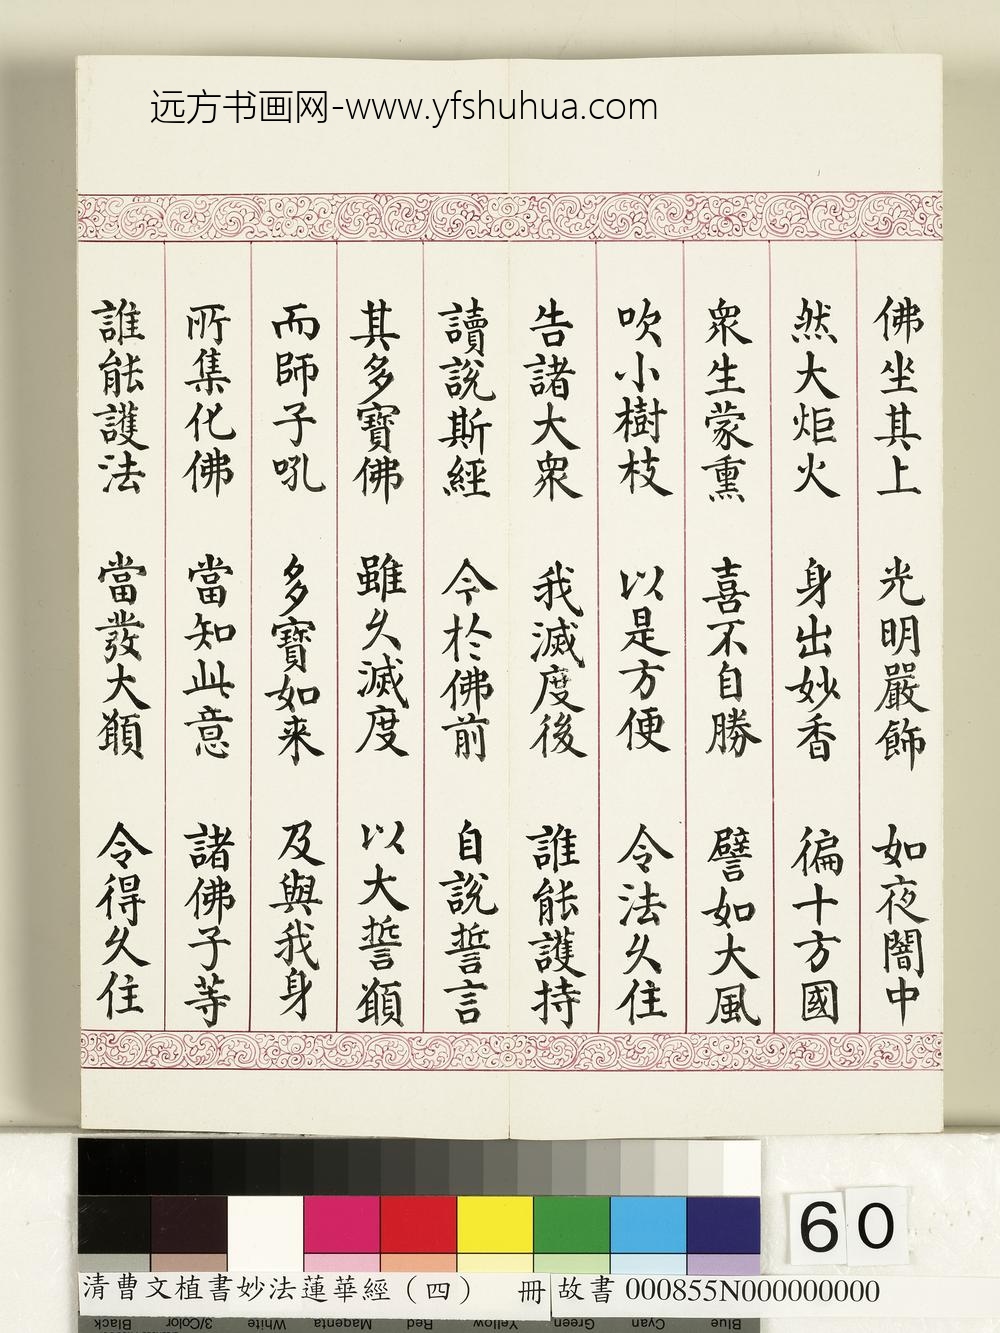 远方书画网-www.yfshuhua.com
佛坐其上 光明嚴飾 如夜闇中
然大炬火 身出妙香 徧十方國
衆生蒙熏 喜不自勝 譬如大風
吹小樹枝 以是方便 令法久住
告諸大衆 我滅度後 誰能護持
讀說斯經 今於佛前 自說誓言
其多寶佛 雖久滅度 以大誓願
而師子吼 多寶如来 及與我身
所集化佛 當知此意 諸佛子等
誰能護法 當發大願 令得久住
60
清曹文植書妙法蓮華經（四） 冊 故書 000855N000000000
Black 3/Color White Magenta Red Yellow Green Cyan Blue